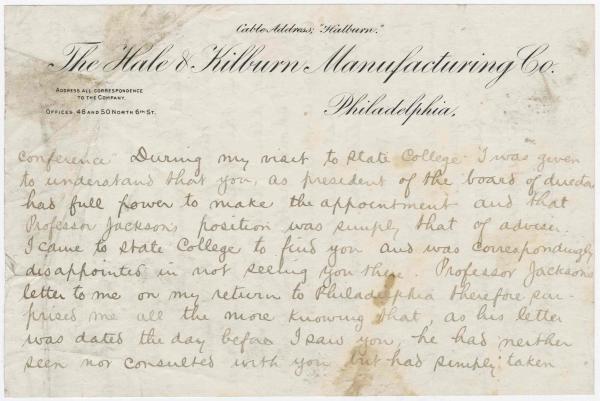 Cable Address; "Halburn."
The Hale & Kilburn Manufacturing Co.
ADDRESS ALL CORRESPONDENCE
TO THE COMPANY.
OFFICES 48 AND 50 NORTH 6TH ST.
Philadelphia,
conference" During my visit to State College I was given
to understand that you, as president of the board of director
had full power to make the appointment and that
Professor Jackson's position was simply that of adviser.
I came to State College to find you and was correspondingly
disappointed in not seeing you then. Professor Jackson's
letter to me on my return to Philadelphia therefore sur-
prised me all the more knowing that, as his letter
was dated the day before I saw you, he had neither
seen nor consulted with you but had simply taken